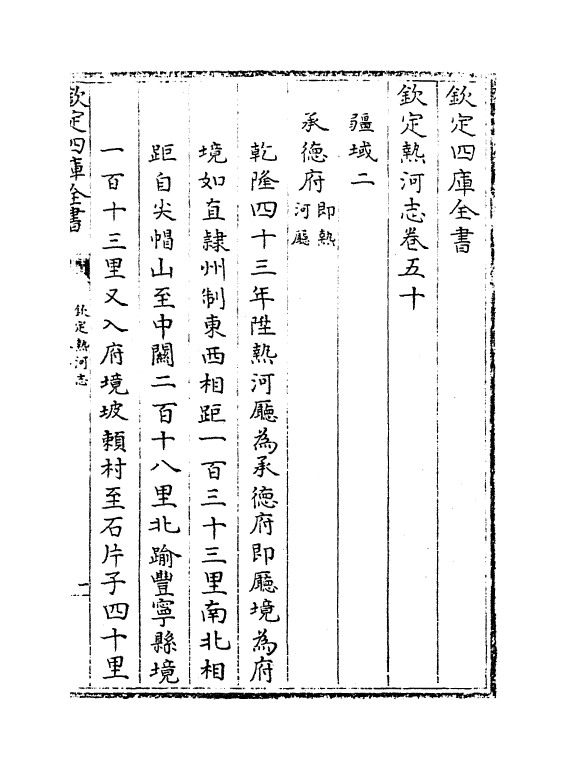 欽定四庫全書
欽定熱河志卷五十
疆域二
承德府即熱
河廳
乾隆四十三年陞熱河廳為承德府即廳境為府
境如直隸州制東西相距一百三十三里南北相
距自尖帽山至中關二百十八里北踰豐寧縣境
一百十三里又入府境坡賴村至石片子四十里
欽定四庫全書
欽定熱河志
一